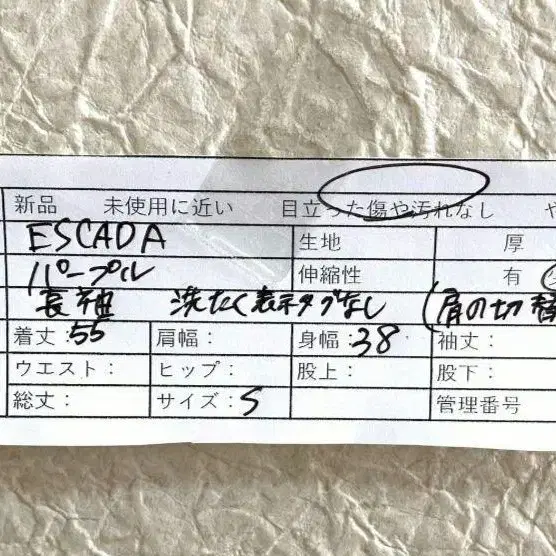 新品 未使用に近い 目立った傷や汚れなし や
ESCADA 生地 厚
パープル 伸縮性 有
長袖 洗たく表示タグなし (肩の切替
着丈:55 肩幅: 身幅:38 袖丈:
ウエスト: ヒップ: 股上: 股下:
総丈: サイズ:S 管理番号